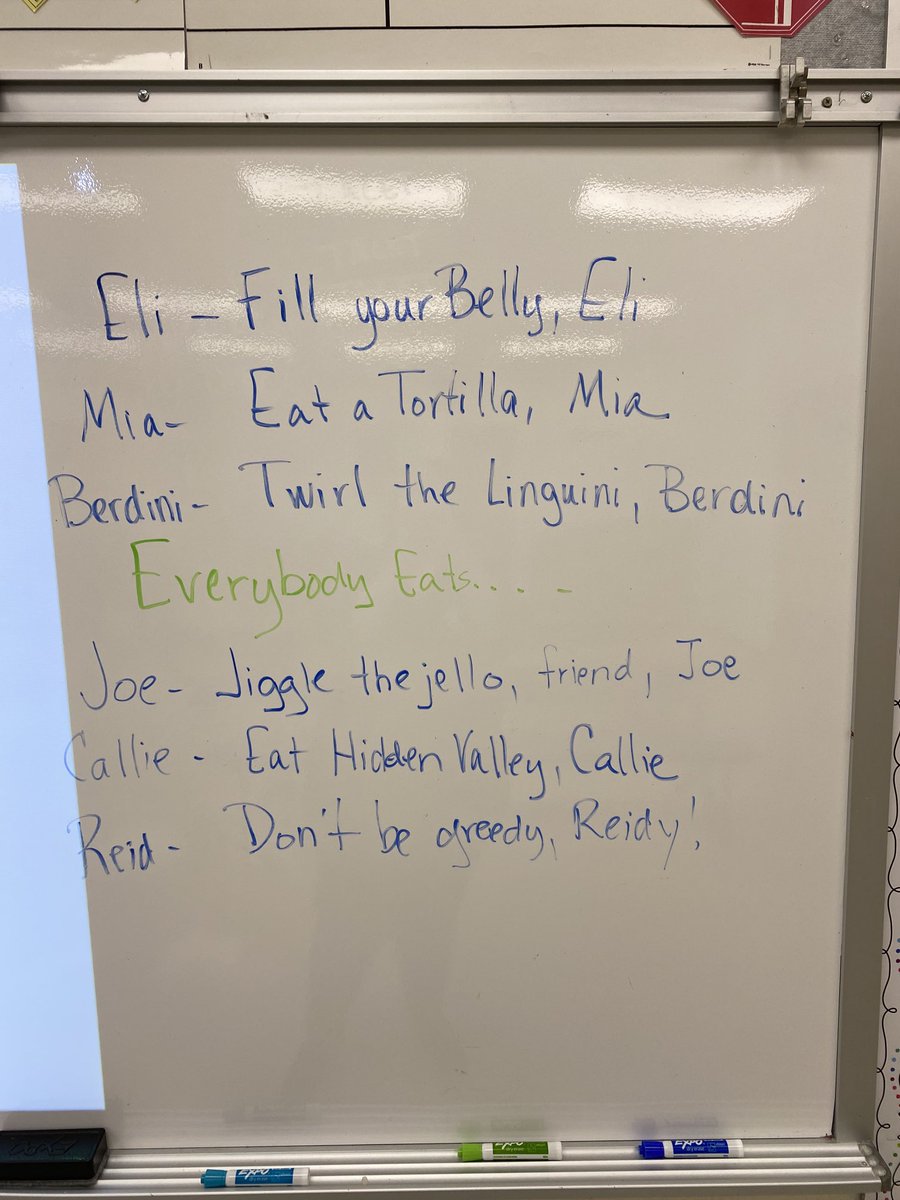 Eli - Fill your Belly, Eli
Mia- Eat a Tortilla, Mia
Berdini- Twirl the Linguini, Berdini
Everybody Eats.....
Joe- Jiggle the jello, friend, Joe
Callie - Eat Hidden Valley, Callie
Reid- Don't be greedy, Reidy!
EXPO
EXPO
EXPO